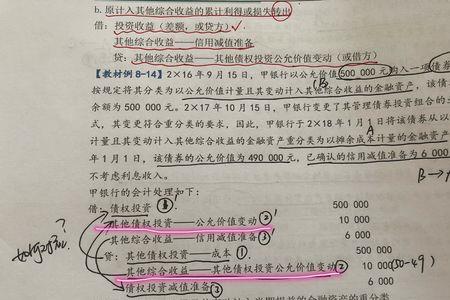 b. 原计入其他综合收益的累计利得或损失转出
借：投资收益（差额，或贷方）
其他综合收益——信用减值准备
贷：其他综合收益——其他债权投资公允价值变动（或借方）
【教材例8-14】2×16年9月15日，甲银行以公允价值500 000元购入一项债券
按规定将其分类为以公允价值计量且其变动计入其他综合收益的金融资产，该债
余额为500 000元。2×17年10月15日，甲银行变更了其管理债券投资组合的
式，其变更符合重分类的要求，因此，甲银行于2×18年1月1日将该债券从以
计量且其变动计入其他综合收益的金融资产重分类为以摊余成本计量的金融资产
年1月1日，该债券的公允价值为490 000元，已确认的信用减值准备为6 000
不考虑利息收入。
甲银行的会计处理如下：
借：债权投资 ①' 500 000
其他债权投资——公允价值变动 ②' 10 000
其他综合收益——信用减值准备 ③' 6 000
贷：其他债权投资——成本 ① 500 000
其他综合收益——其他债权投资公允价值变动 ② 10 000 (50-49)
债权投资减值准备 ③ 6 000
如何对应?
B
A
B→